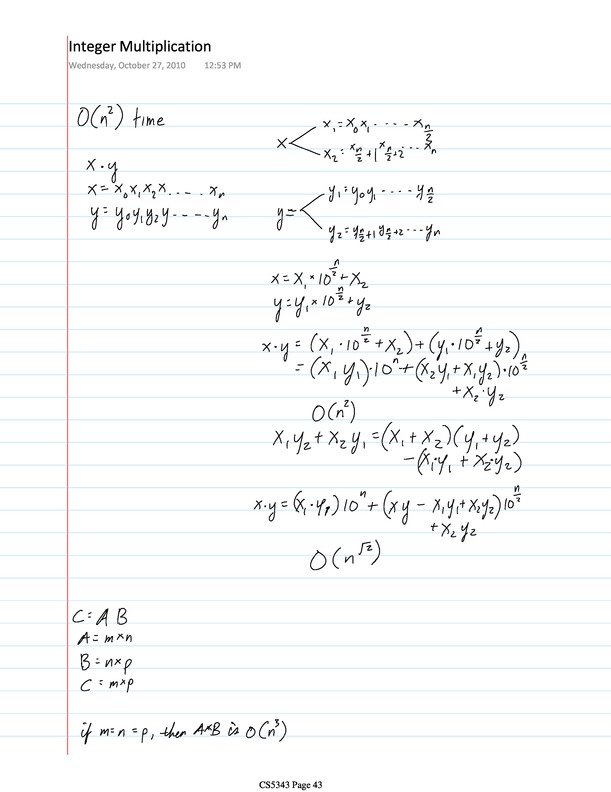 Integer Multiplication
Wednesday, October 27, 2010 12:53 PM
O(n²) time
x·y
x = x₀x₁x₂x.....xₙ
y = y₀y₁y₂y-----yₙ
x < x₁ = x₀x₁ ...... x_{n/2}
x₂ = x_{n/2}+1 x_{n/2}+2 ... xₙ
y = < y₁ = y₀y₁ ..... y_{n/2}
y₂ = y_{n/2}+1 y_{n/2}+2 ... yₙ
x = x₁ × 10^{n/2} + x₂
y = y₁ × 10^{n/2} + y₂
x·y = (x₁·10^{n/2} + x₂) + (y₁·10^{n/2} + y₂)
= (x₁y₁)·10ⁿ + (x₂y₁ + x₁y₂)·10^{n/2}
+ x₂·y₂
O(n²)
x₁y₂ + x₂y₁ = (x₁ + x₂)(y₁ + y₂)
- (x₁·y₁ + x₂·y₂)
x·y = (x₁·y₁)10ⁿ + (xy - x₁y₁ + x₂y₂)10^{n/2}
+ x₂y₂
O(n^{√2})
C = A B
A = m×n
B = n×p
C = m×p
if m = n = p, then A×B is O(n³)
CS5343 Page 43